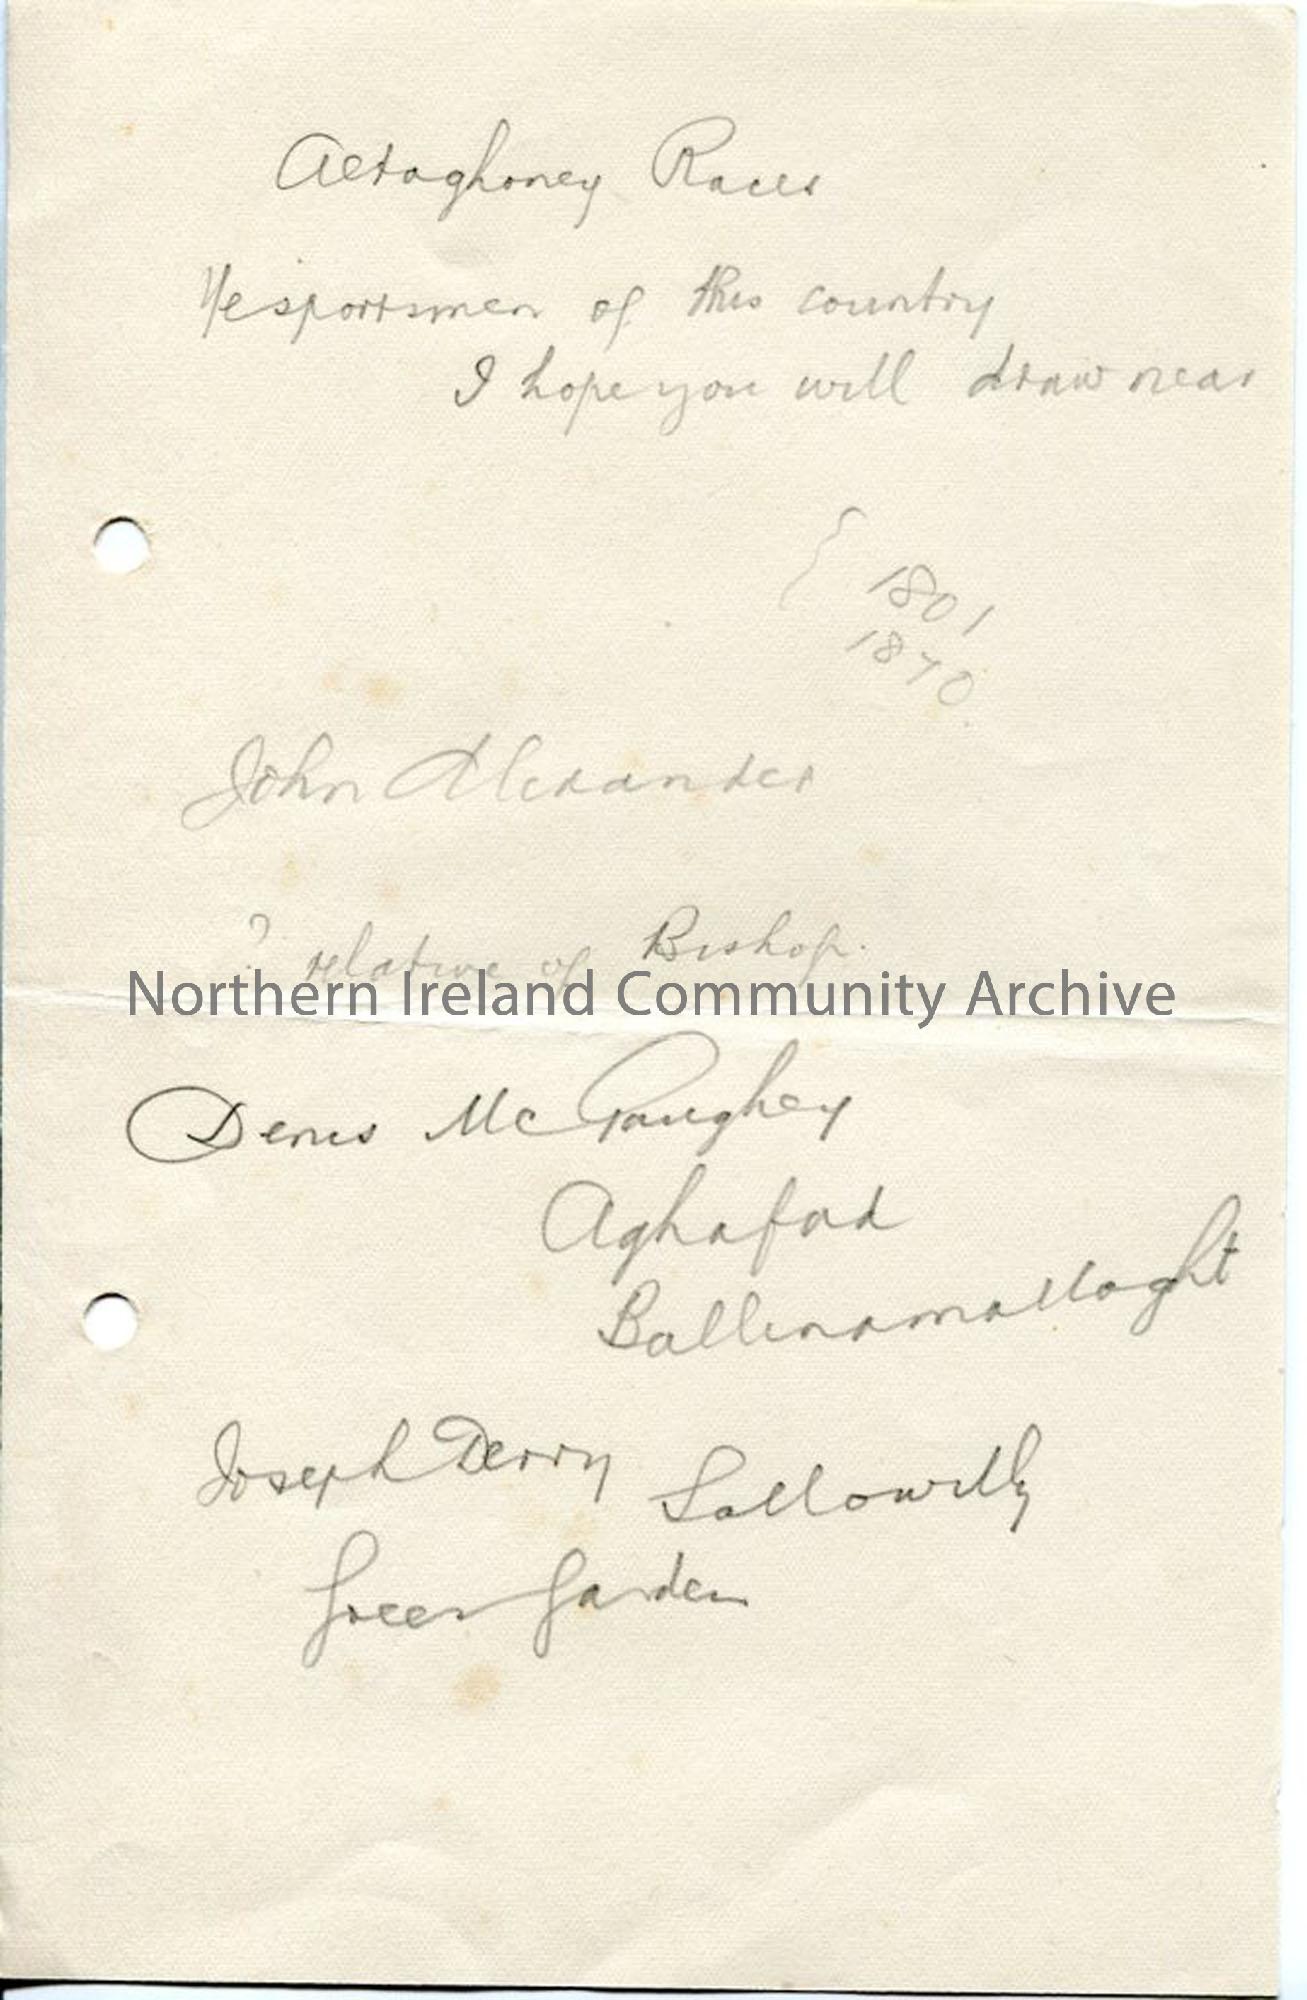 Altaghoney Races
Ye sportsmen of this country
I hope you will draw near
{ 1801
1870.
John Alexander
? relative of Bishop.
Northern Ireland Community Archive
Denis McGaughey
Aghafad
Ballinamallaght
Joseph Derry Sallowilly
Green Garden